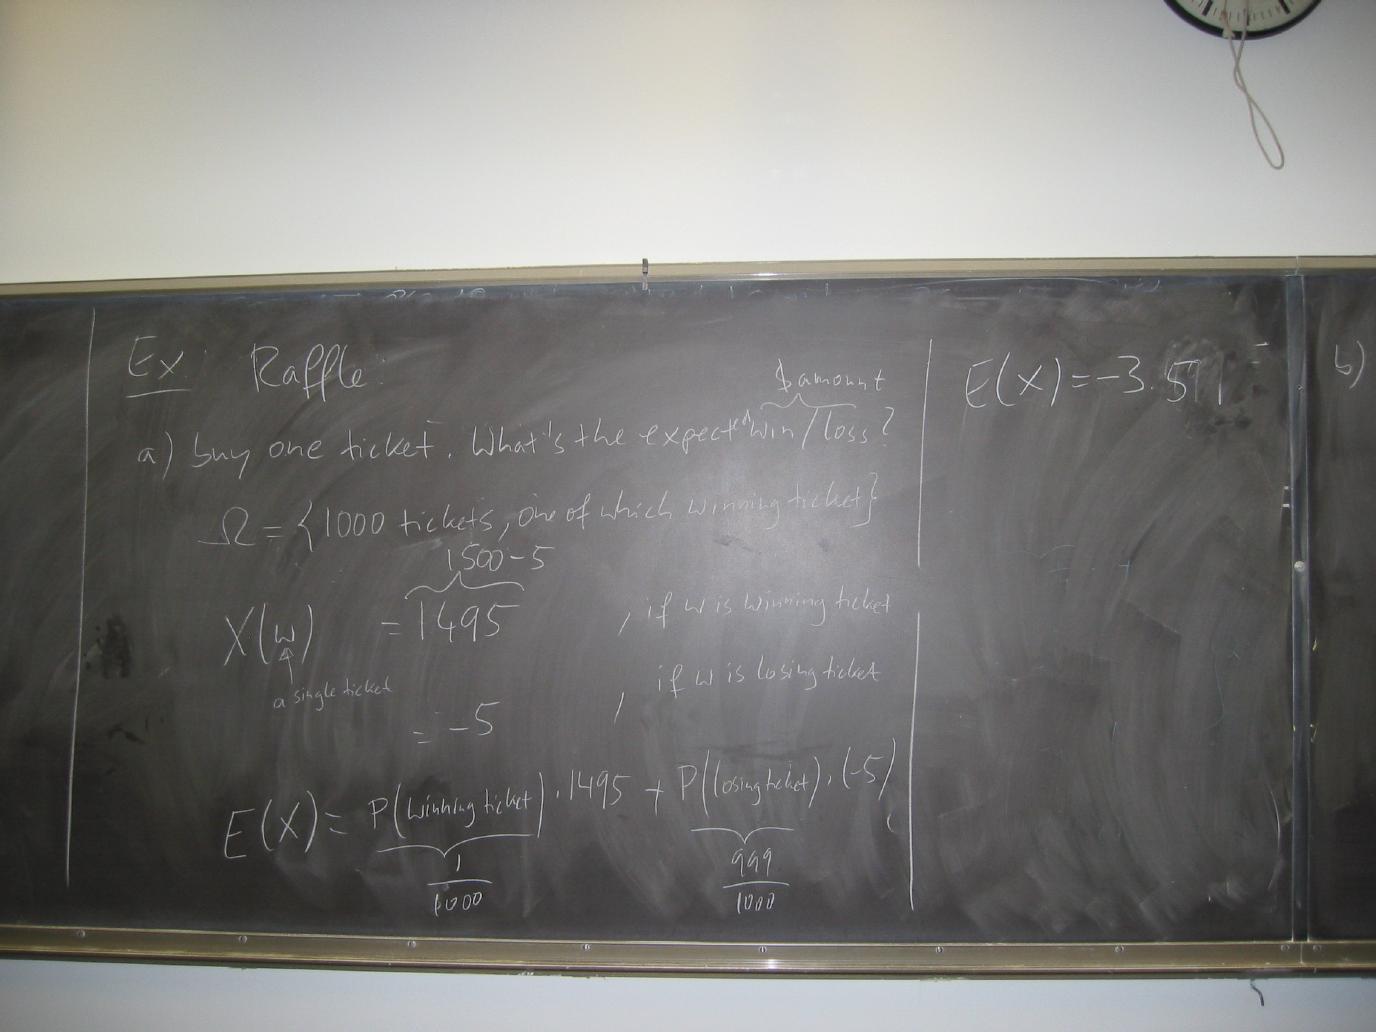 Ex: Raffle:
$ amount
a) buy one ticket. What's the expected win/loss?
Ω = {1000 tickets, one of which winning ticket}
1500-5
X(ω) = 1495 , if ω is winning ticket
a single ticket
= -5 , if ω is losing ticket
E(X) = P(winning ticket) · 1495 + P(losing ticket) · (-5)
1/1000 999/1000
E(X) = -3.5
b)